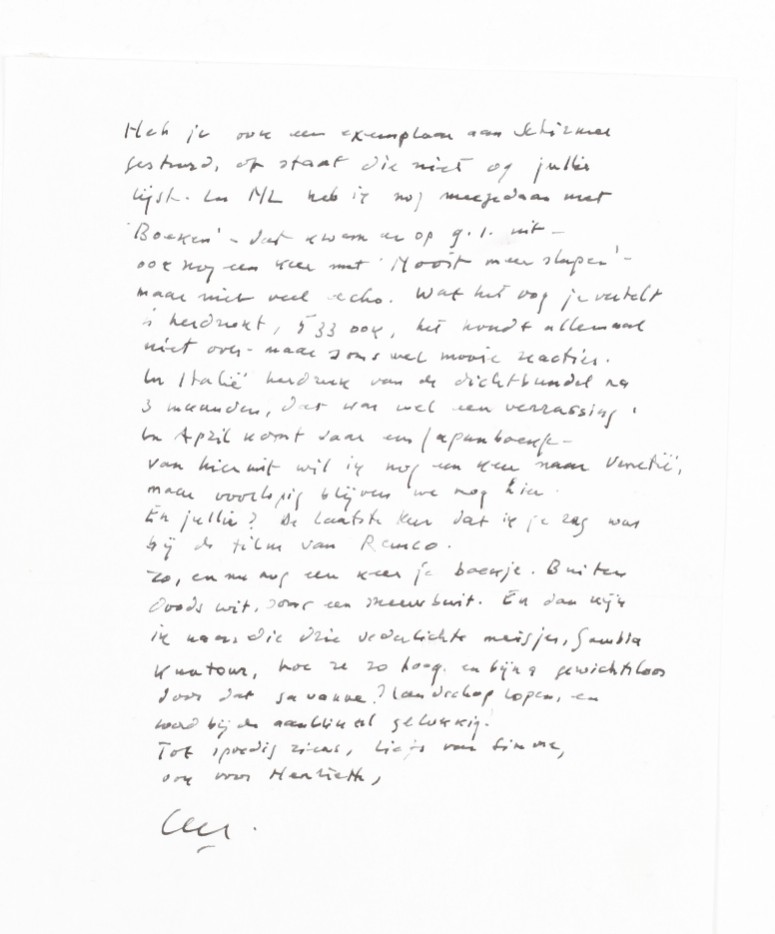 Heb je ook een exemplaar aan Schirmer
gestuurd, of staat die niet op jullie
lijst. In ML heb ik nog meegedaan met
'Boeken' - dat kwam er op g.l. uit -
ook nog een keer met 'Nooit meer slapen' -
maar niet veel echo. Wat het oog je vertelt
is herdrukt, 533 ook, het houdt allemaal
niet over - maar soms wel mooie reacties.
In Italië herdruk van de dichtbundel na
3 maanden, dat was wel een verrassing.
In April komt daar een Japanboekje -
van hieruit wil ik nog een keer naar Venetië,
maar voorlopig blijven we nog hier.
En jullie? De laatste keer dat ik je zag was
bij de film van Remco.
Zo, en nu nog een keer je boekje. Buiten
doods wit, soms een sneeuwbuit. En dan kijk
ik naar die drie vederlichte meisjes, Gambia
Kuntour, hoe ze zo hoog en bijna gewichtsloos
door dat savanne? landschap lopen, en
word bij de aanblik al gelukkig.
Tot spoedig ziens, liefs van Simone,
ook voor Henriette,
Cees.